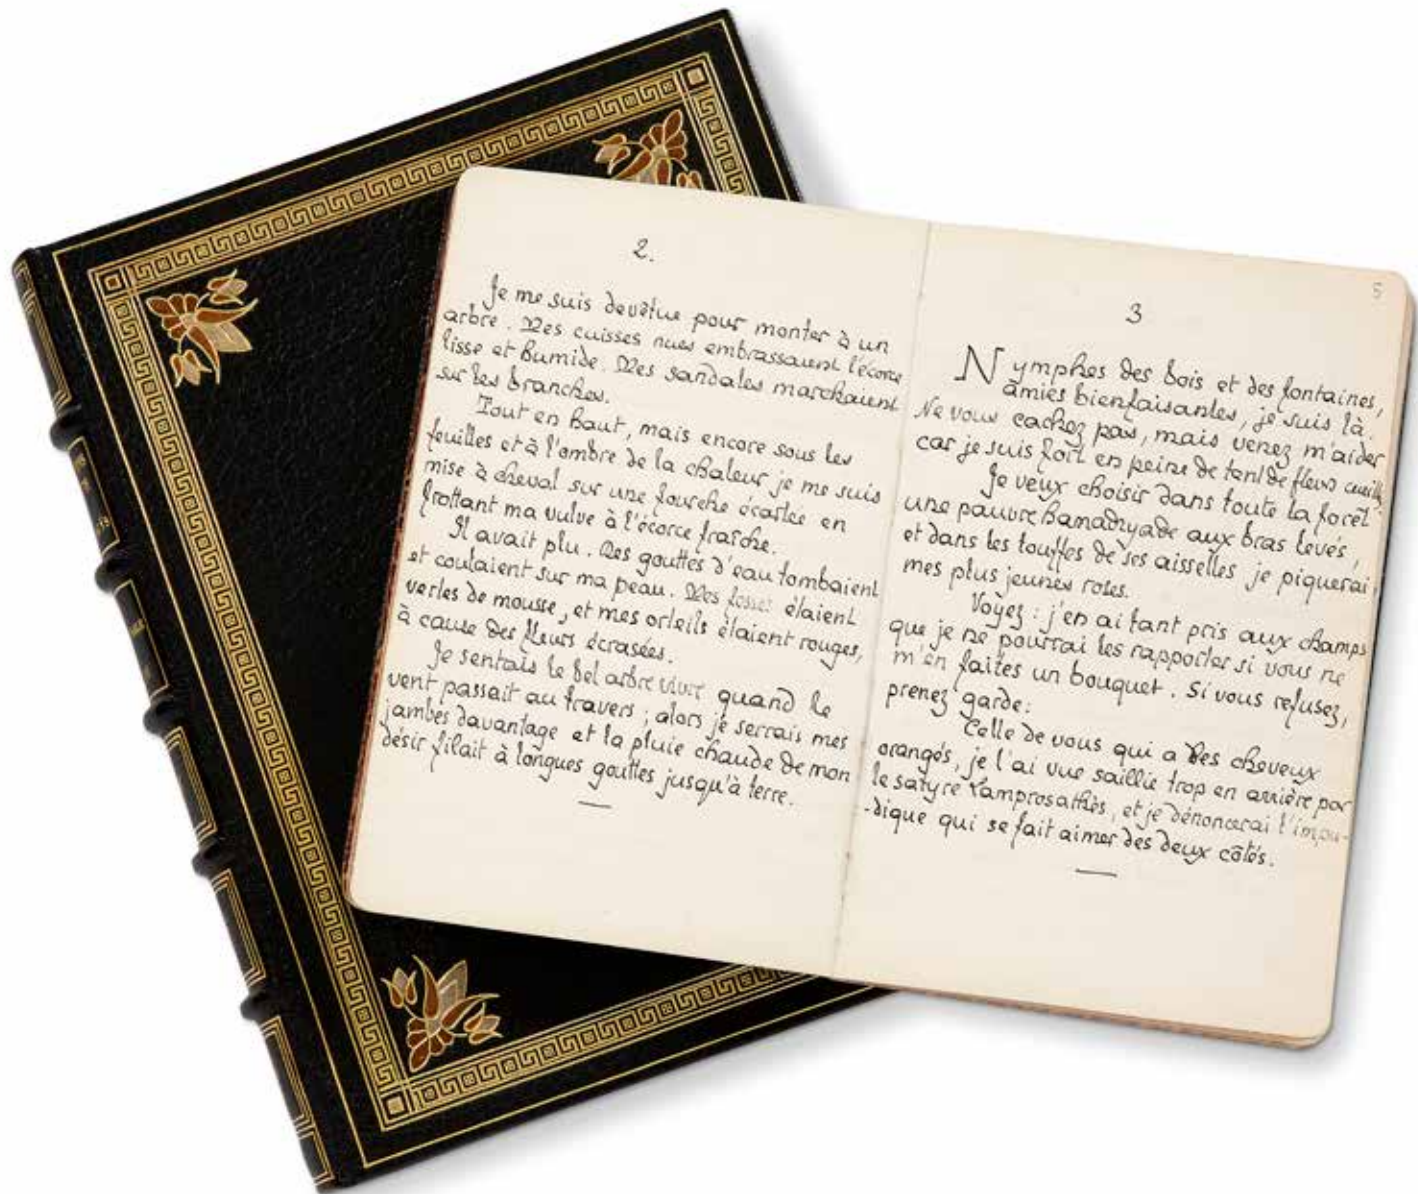 2.
Je me suis devêtue pour monter à un
arbre. Mes cuisses nues embrassaient l'écorce
lisse et humide. Mes sandales marchaient
sur les branches.
Tout en haut, mais encore sous les
feuilles et à l'ombre de la chaleur je me suis
mise à cheval sur une fourche écartée en
frottant ma vulve à l'écorce fraîche.
Il avait plu. Des gouttes d'eau tombaient
et coulaient sur ma peau. Mes fesses étaient
vertes de mousse, et mes orteils étaient rouges,
à cause des fleurs écrasées.
Je sentais le bel arbre vivre quand le
vent passait au travers ; alors je serrais mes
jambes davantage et la pluie chaude de mon
désir filait à longues gouttes jusqu'à terre.
5
3
Nymphes des bois et des fontaines,
amies bienfaisantes, je suis là.
Ne vous cachez pas, mais venez m'aider
car je suis fort en peine de tant de fleurs
Je veux choisir dans toute la forêt
une pauvre hamadryade aux bras levés,
et dans les touffes de ses aisselles je piquerai
mes plus jeunes roses.
Voyez : j'en ai tant pris aux champs
que je ne pourrai les rapporter si vous ne
m'en faites un bouquet. Si vous refusez,
prenez garde :
Celle de vous qui a des cheveux
orangés, je l'ai vue saillie trop en arrière par
le satyre Lamprosathès, et je dénoncerai l'impu-
-dique qui se fait aimer des deux côtés.